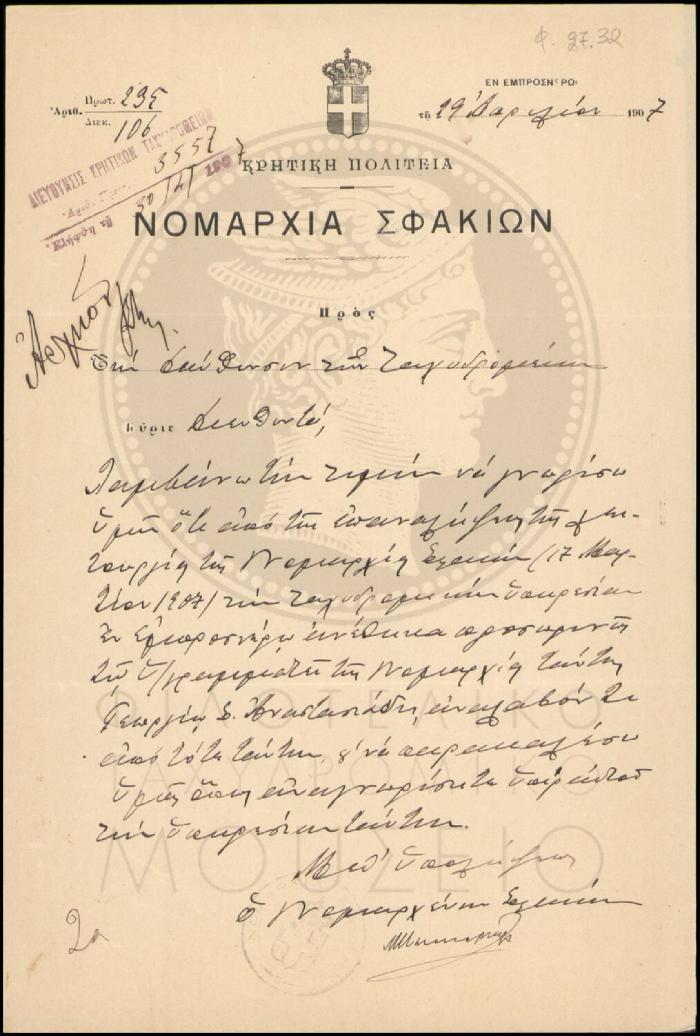 Φ. 27.32
Ἀριθ. Πρωτ. 295
Διεκ. 106
ΕΝ ΕΜΠΡΟΣΝΕΡΩ
τῇ 29 Ἀπριλίου 1907
ΔΙΕΥΘΥΝΣΙΣ ΚΡΗΤΙΚΩΝ ΤΑΧΥΔΡΟΜΕΙΩΝ
Ἀριθ. Πρωτ. 3557
Ἐλήφθη τῇ 30/4/1907
ΚΡΗΤΙΚΗ ΠΟΛΙΤΕΙΑ
ΝΟΜΑΡΧΙΑ ΣΦΑΚΙΩΝ
Πρὸς
Τὴν Διεύθυνσιν τῶν Ταχυδρομείων
Κύριε Διευθυντά,
Λαμβάνω τὴν τιμὴν νὰ γνωρίσω
ὑμῖν ὅτι ἀπὸ τῆς ἐπαναλήψεως τῆς λει-
τουργίας τῆς Νομαρχίας Σφακίων (17 Μαρ-
τίου 1907) τὴν ταχυδρομικὴν ὑπηρεσίαν
ἐν Ἐμπροσνέρῳ ἀνέθηκα προσωρινῶς
τῷ Ὑ)γραμματεῖ τῆς Νομαρχίας ταύτης
Γεωργίῳ Σ. Ἀναστασιάδῃ, ἀναλαβόντι
ἀπὸ τότε ταύτην, κ' νὰ παρακαλέσω
ὑμᾶς ὅπως ἀναγνωρίσητε ὑπὲρ αὐτοῦ
τὴν ὑπηρεσίαν ταύτην.
Μεθ' ὑπολήψεως
ὁ Νομαρχεύων Σφακίων
2α
ΦΙΛΟΤΕΛΙΚΟ
ΤΑΧΥΔΡΟΜΙΚΟ
ΜΟΥΣΕΙΟ